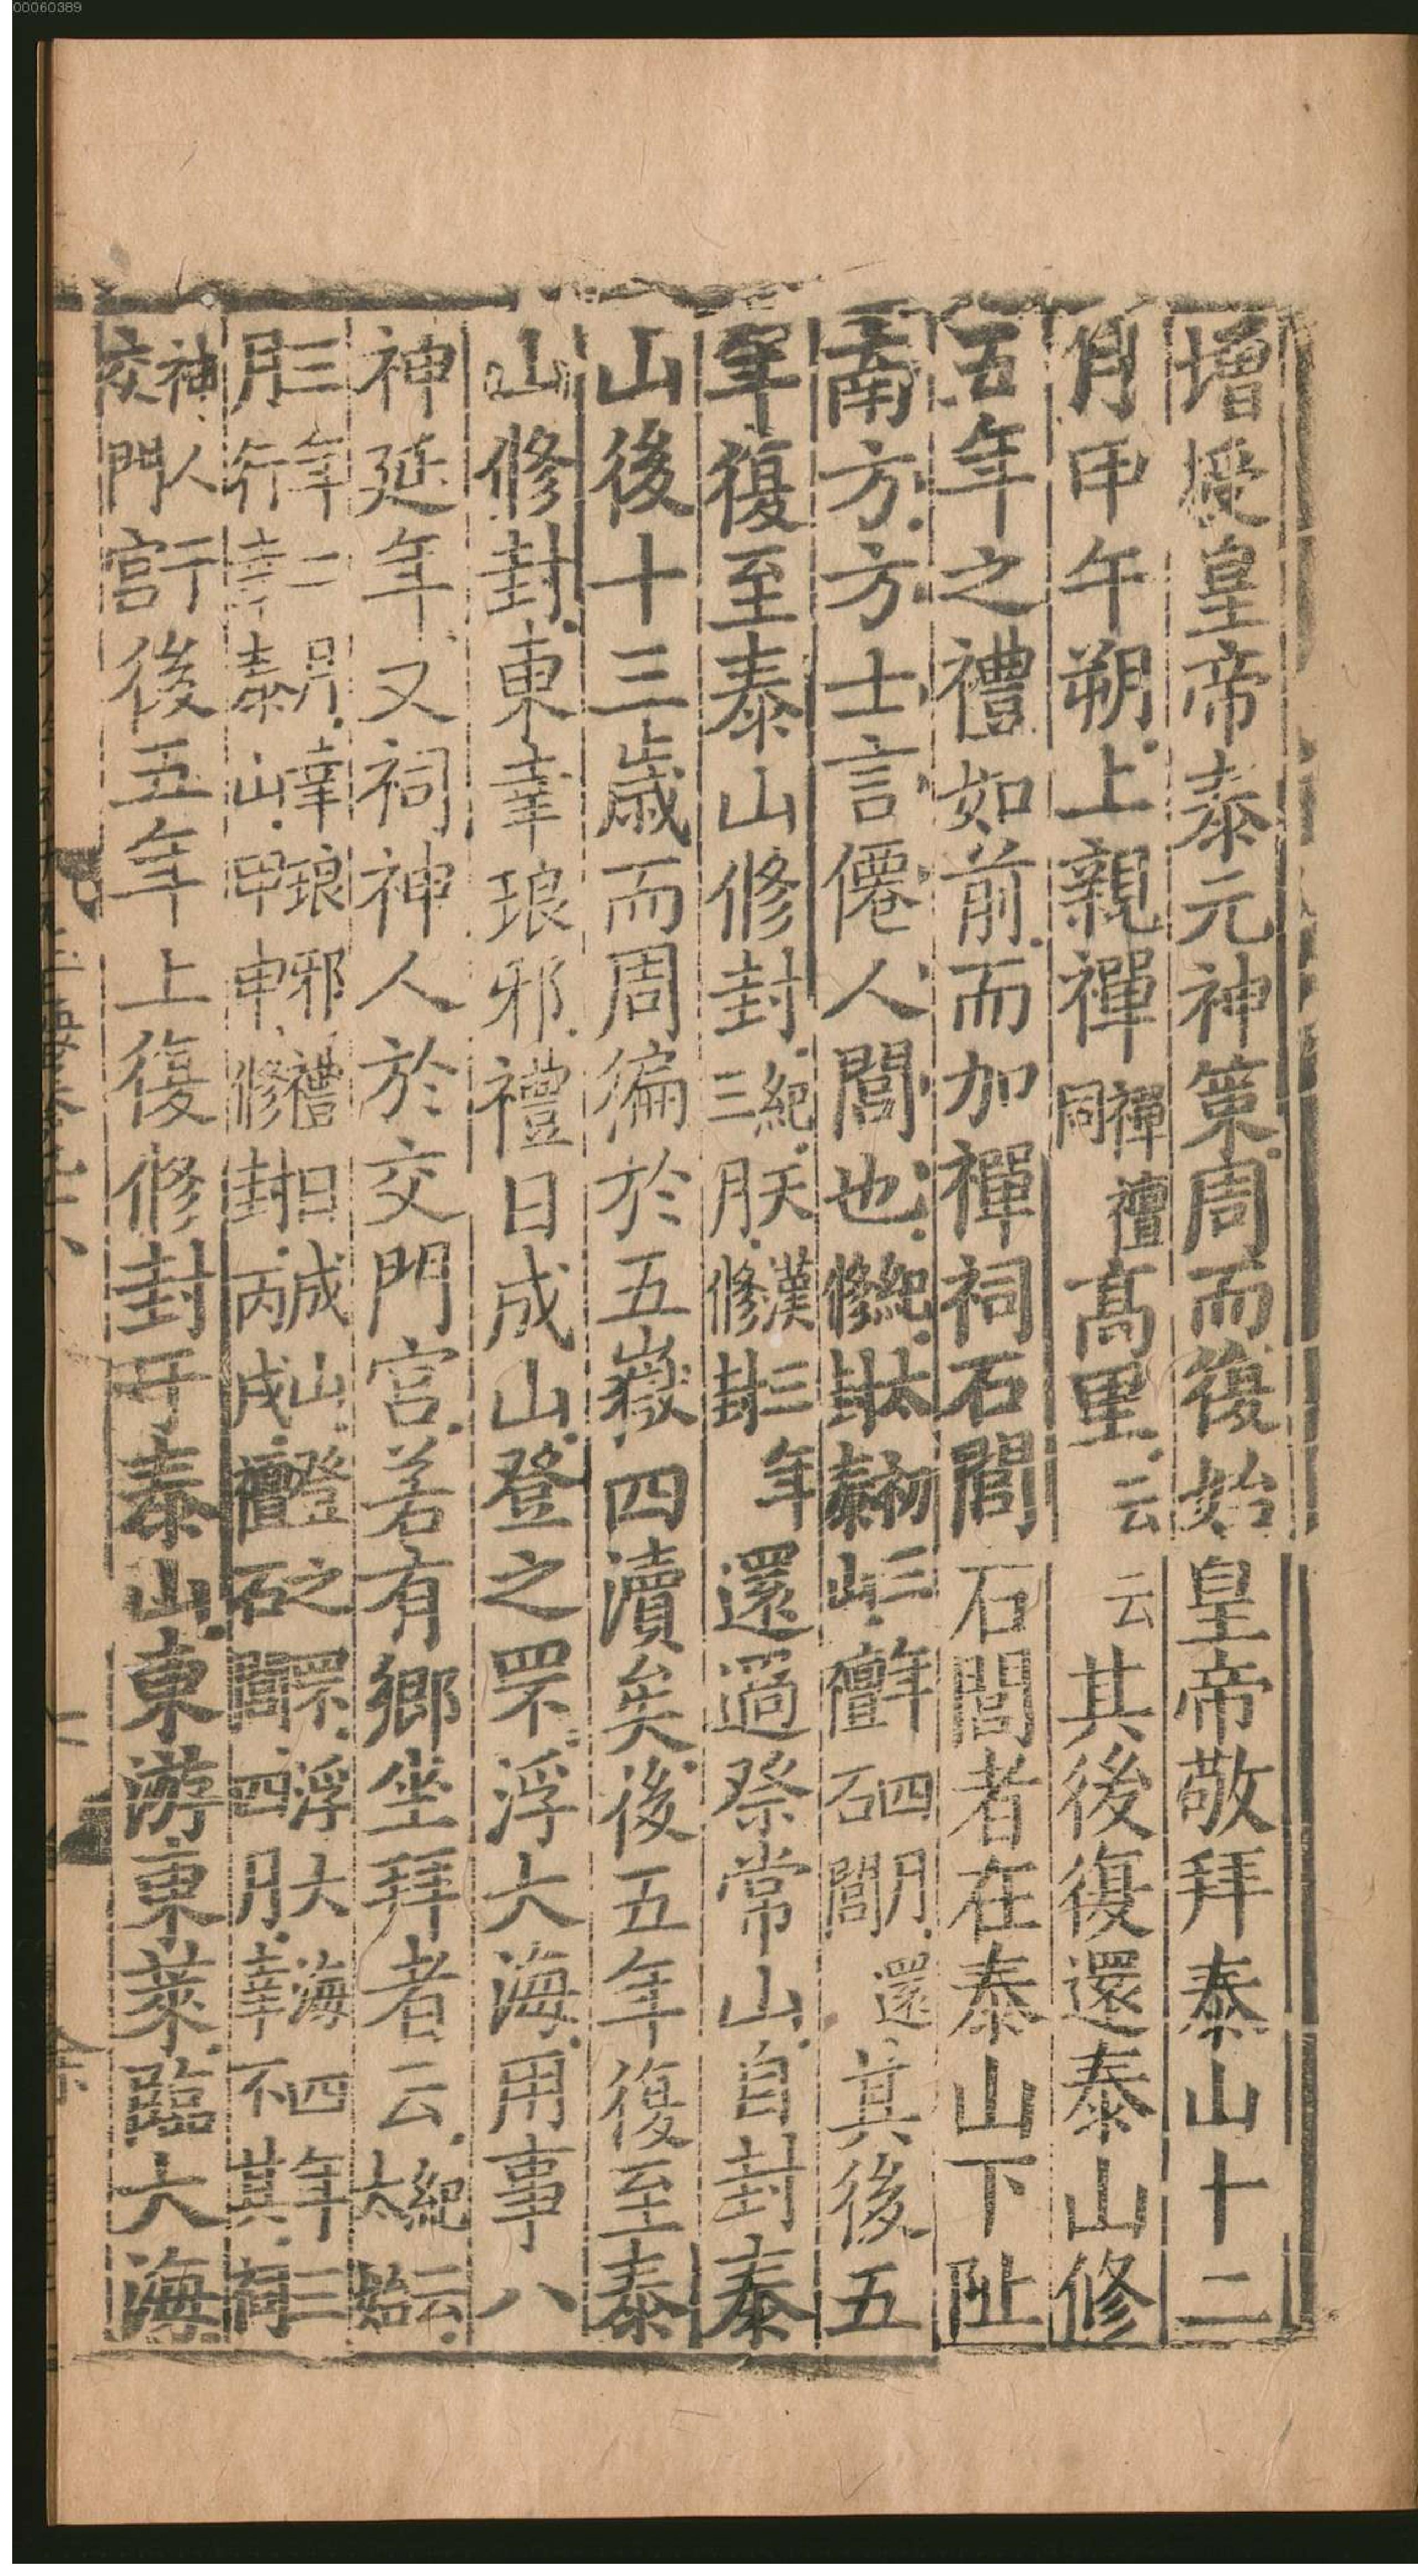 00060389
增授皇帝泰元神策周而復始皇帝敬拜泰山十二
月甲午朔上親禪禪禮同高里云云其後復還泰山修
五年之禮如前而加禪祠石閭石閭者在泰山下阯
南方方士言僊人閭也紀太初三年四月還修封泰山襢石閭其後五
年復至泰山修封紀天漢三年三月修封還過祭常山自封泰
山後十三歲而周徧於五嶽四瀆矣後五年復至泰
山修封東幸琅邪禮日成山登之罘浮大海用事八
神延年又祠神人於交門宮若有鄉坐拜者云紀云太始
三年二月幸琅邪禮日成山登之罘浮大海四年三月行幸泰山甲申修封丙戌襢石閭四月幸不其祠
神人于交門宮後五年上復修封于泰山東游東萊臨大海